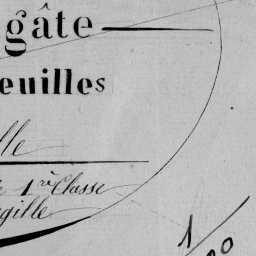 gâte
euilles
lle
1re Classe
gille
1/00